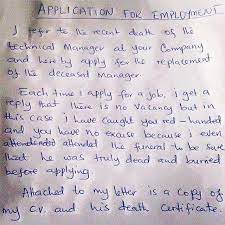 APPLICATION FOR EMPLOYMENT
I refer to the recent death of the
technical Manager at your Company
and here by apply for the replacement
of the deceased manager.
Each time I apply for a job, i get a
reply that there is no vacancy but in
this case i have caught you red-handed
and you have no excuse because i even
attended the funeral to be sure
that he was truly dead and burried
before applying.
Attached to my letter is a copy of
my C.V. and his death certificate.